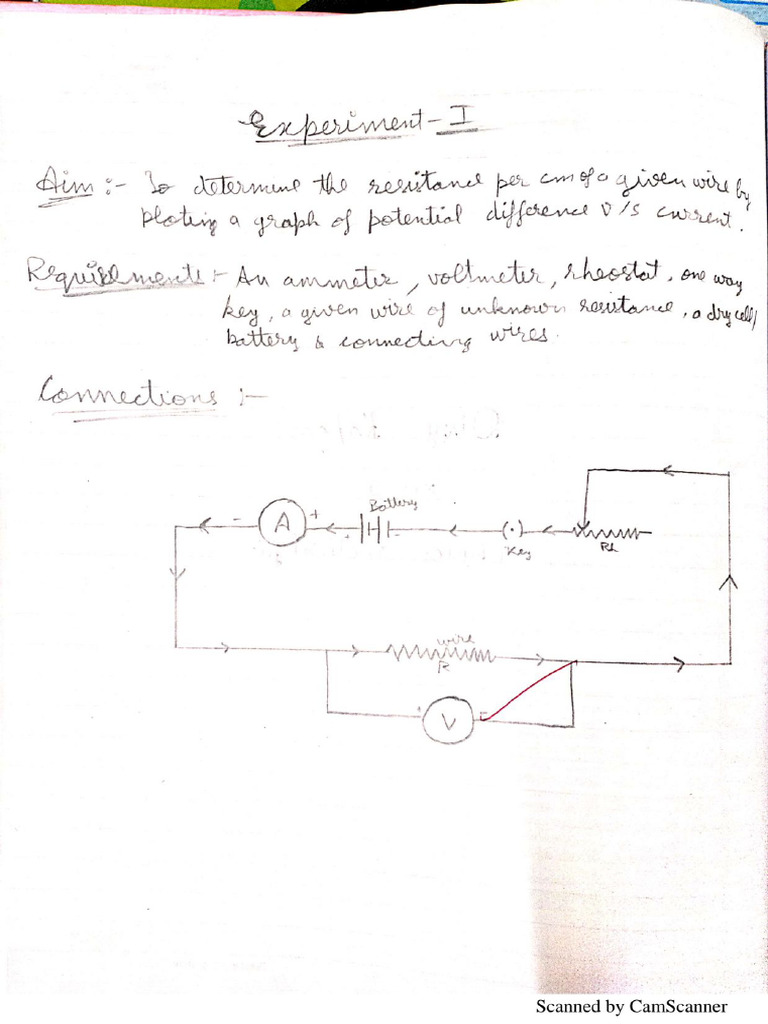 Experiment - I
Aim :- To determine the resistance per cm of a given wire by
ploting a graph of potential difference v/s current.
Requirements :- An ammeter, voltmeter, rheostat, one way
key, a given wire of unknown resistance, a dry cell/
battery & connecting wires.
Connections :-
- A + Battery + -
(·) Key
Rh
wire
R
+ V -
Scanned by CamScanner